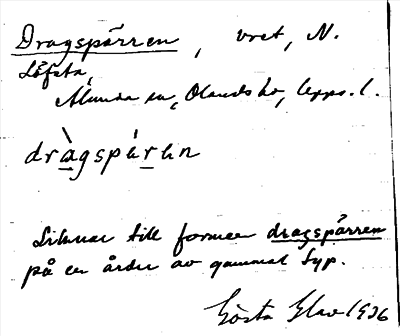 Dragspärren, vret, N.
Löfsta,
Alunda sn, Olands hd, Upps. l.
dràgspär̲ən
Liknar till formen dragspärren
på en årder av gammal typ.
Gösta 1936